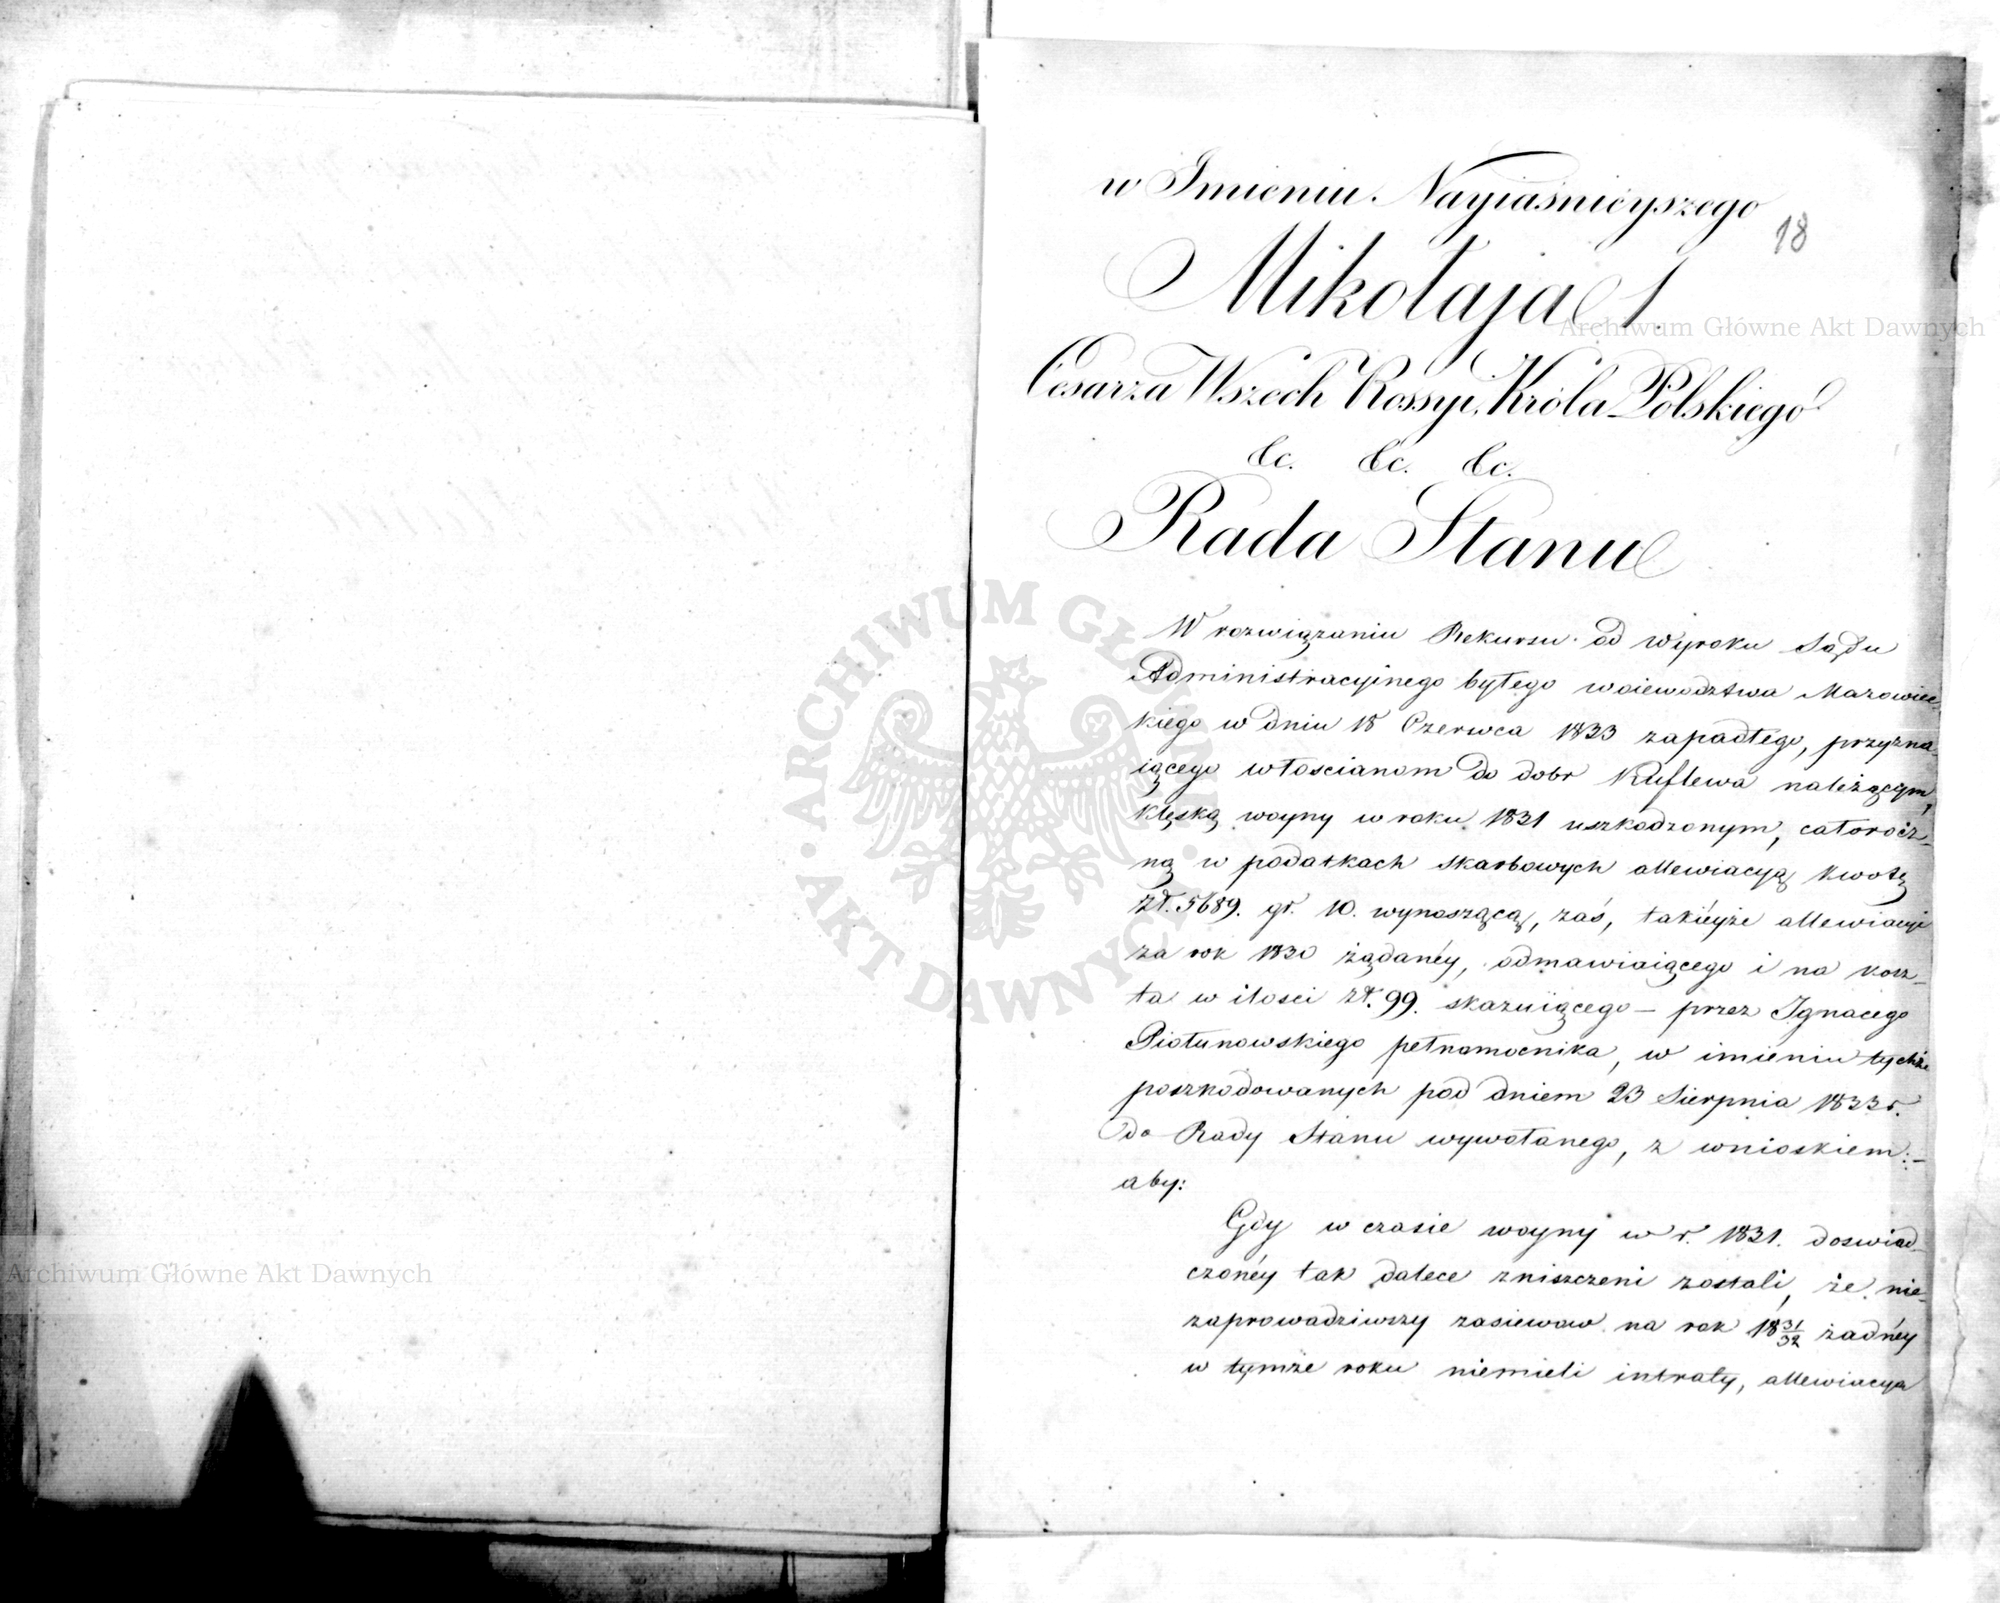 w Imieniu Nayiaśnieyszego
18
Mikołaja I
Cesarza Wszech Rossyi, Króla Polskiego
&c. &c. &c.
Rada Stanu
W rozwiązaniu Rekursu od Wyroku Sądu
Administracyinego byłego woiewodztwa Mazowiec-
kiego w dniu 18 Czerwca 1833 zapadłego, przyzna-
iącego włoscianom do dobr Kuflewa należącym,
klęską woyny w roku 1831 uszkodzonym, całorocz-
ną w podatkach skarbowych allewiacyą kwotę
Zł. 5689. gr. 10. wynoszącą, zaś, takiéyże allewiacyi
za rok 1830 żądanéy, odmawiaiącego i na kosz-
ta w ilosci Zł. 99. skazuiącego – przez Ignacego
Piotunowskiego pełnomocnika, w imieniu tychże
poszkodowanych pod dniem 23 Sierpnia 1833 r.
do Rady Stanu wywołanego, z wnioskiem: –
aby:
Gdy w czasie woyny w r. 1831. doswiad-
czonéy tak dalece zniszczeni zostali, że nie-
zaprowadziwszy zasiewow na rok 18 31/32 żadnéy
w tymże roku niemieli intraty, allewiacya
Archiwum Główne Akt Dawnych
Archiwum Główne Akt Dawnych
· ARCHIWUM GŁÓWNE · AKT DAWNYCH